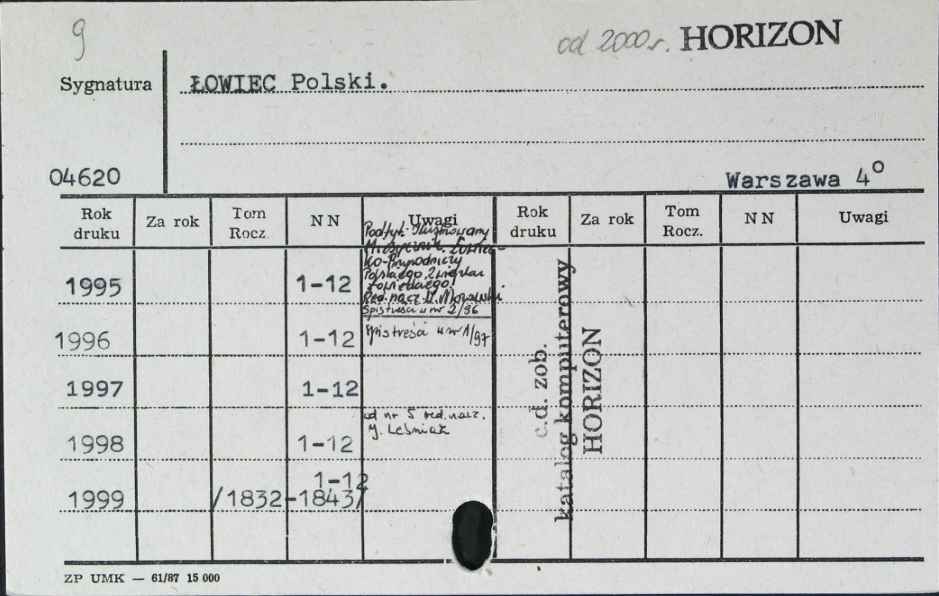 9
od 2000 r. HORIZON
Sygnatura ŁOWIEC Polski.
04620
Warszawa 4°
Rok druku Za rok Tom Rocz. NN Uwagi Rok druku Za rok Tom Rocz. NN Uwagi
Podtyt. Ilustrowany
Miesięcznik Łowiec-
ko-Przyrodniczy
Polskiego Związku
Łowieckiego
Red. nacz.
1995 1-12
Spis treści w nr 2/96
1996 1-12 Spis treści w nr 1/97
1997 1-12
od nr 5 red. nacz.
J. Leśniak
1998 1-12
1-12
1999 /1832-1843/
c.d. zob.
katalog komputerowy
HORIZON
ZP UMK — 61/87 15 000